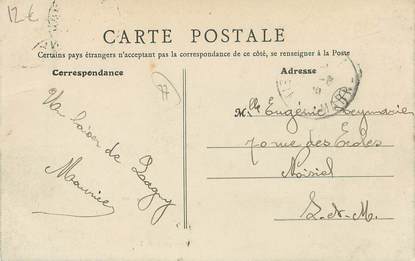 12 €
CARTE POSTALE
Certains pays étrangers n'acceptant pas la correspondance de ce côté, se renseigner à la Poste
Correspondance
Adresse
77
Un baiser de Lagny
Maurice
M.lle Eugénie
70 rue des Ecoles
Noisiel
S.-et-M.